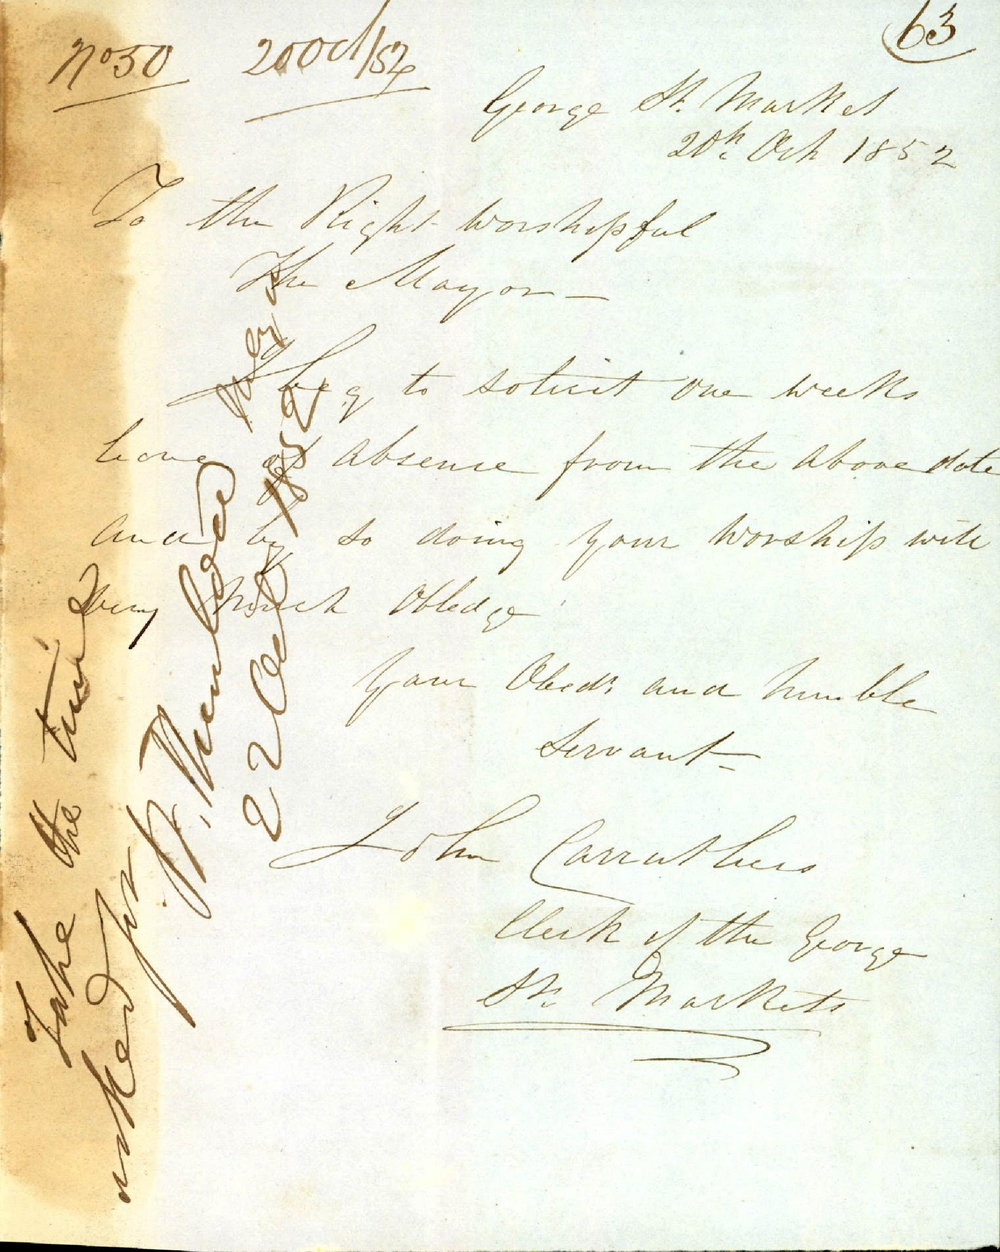 No 50 20 Oct/52
63
George St. Market
20th Oct 1852
To the Right Worshipful
The Mayor —
I beg to solicit one weeks
leave of absence from the above date
and by so doing your worship will
very much Obledge
Your Obedt and humble
Servant —
John Carruthers
Clerk of the George
St. Markets
Take the time
asked for
W. Thurlow Mayor
22 Oct 1852